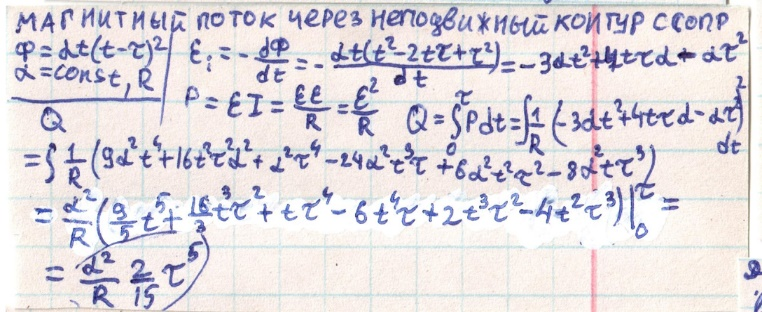 МАГНИТНЫЙ ПОТОК ЧЕРЕЗ НЕПОДВИЖНЫЙ КОНТУР С СОПР
Φ=αt(t-τ)²
α=const, R
Q
ε_i=-dΦ/dt=-αt(t²-2tτ+τ²)/dt=-3αt²+4tτα-ατ²
P=εI=εε/R=ε²/R Q=∫₀^τ Pdt=∫1/R(-3αt²+4tτα-ατ²)²dt
=∫1/R(9α²t⁴+16t²τ²α²+α²τ⁴-24α²t³τ+6α²t²τ²-8α²tτ³)
=α²/R(9/5t⁵+16/3t³τ²+tτ⁴-6t⁴τ+2t³τ²-4t²τ³)|₀^τ=
=α²/R 2/15 τ⁵